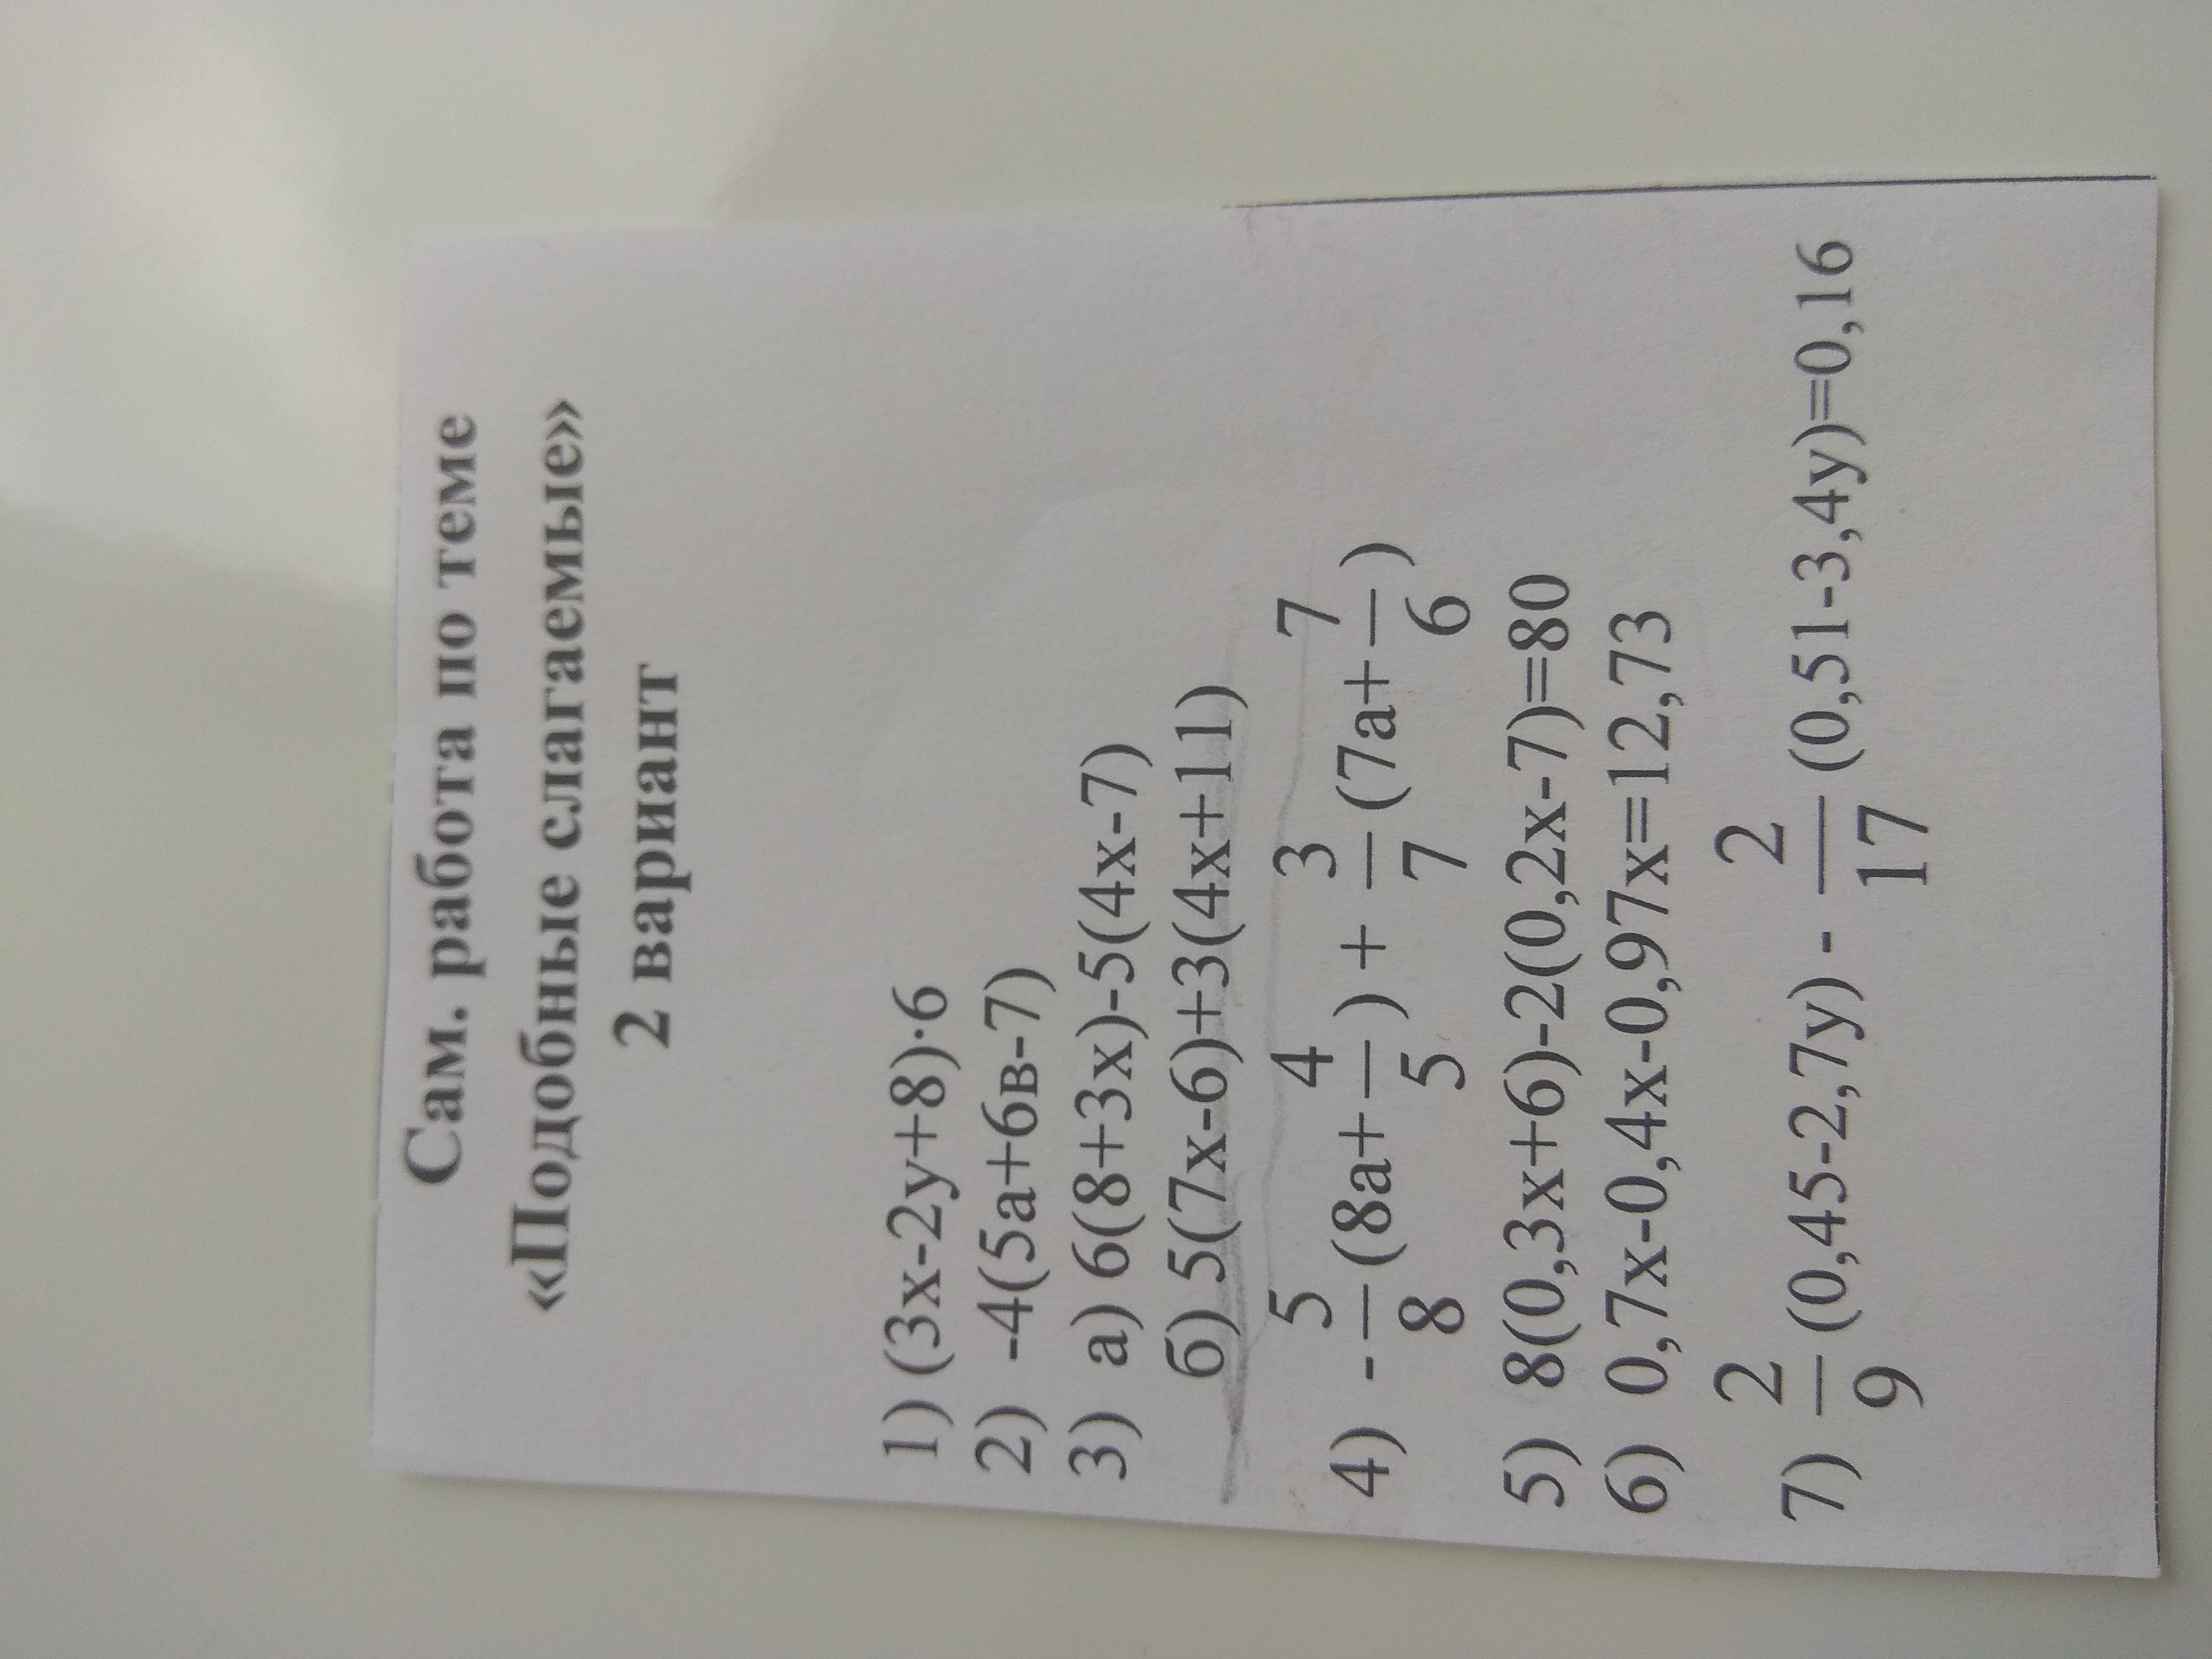 Сам. работа по теме
«Подобные слагаемые»
2 вариант
1) (3х-2у+8)·6
2) -4(5а+6в-7)
3) а) 6(8+3х)-5(4х-7)
б) 5(7х-6)+3(4х+11)
4) -5/8(8а+4/5) + 3/7(7а+7/6)
5) 8(0,3х+6)-2(0,2х-7)=80
6) 0,7х-0,4х-0,97х=12,73
7) 2/9(0,45-2,7у) - 2/17(0,51-3,4у)=0,16